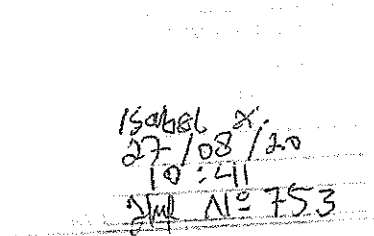 Isabel X.
27/08/20
10:41
Nº 753